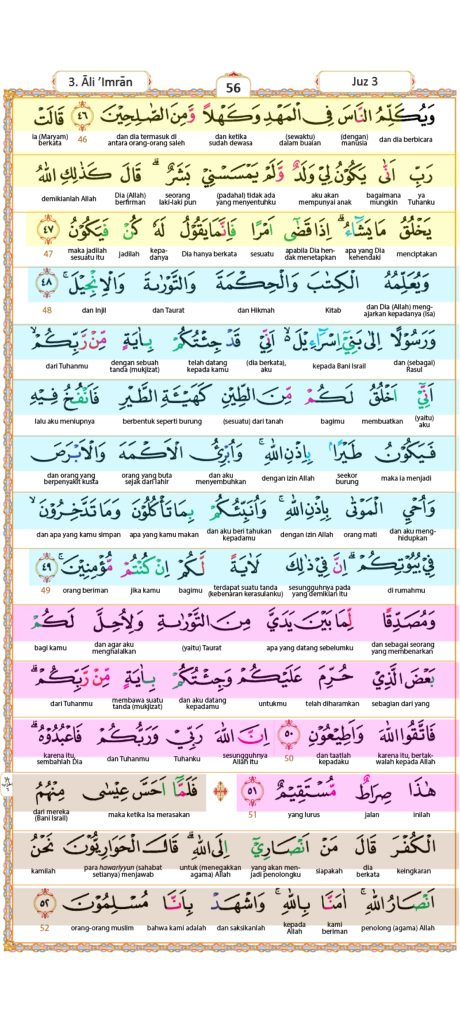 3. Āli 'Imrān
56
Juz 3
وَيُكَلِّمُ النَّاسَ فِى الْمَهْدِ وَكَهْلًا وَّمِنَ الصّٰلِحِيْنَ ٤٦ قَالَتْ
dan dia berbicara (dengan) manusia (sewaktu) dalam buaian dan ketika sudah dewasa dan dia termasuk di antara orang-orang saleh 46 ia (Maryam) berkata
رَبِّ اَنّٰى يَكُوْنُ لِيْ وَلَدٌ وَّلَمْ يَمْسَسْنِيْ بَشَرٌ ۗ قَالَ كَذٰلِكِ اللّٰهُ
ya Tuhanku bagaimana mungkin aku akan mempunyai anak (padahal) tidak ada yang menyentuhku seorang laki-laki pun Dia (Allah) berfirman demikianlah Allah
يَخْلُقُ مَا يَشَاۤءُ ۗ اِذَا قَضٰٓى اَمْرًا فَاِنَّمَا يَقُوْلُ لَهٗ كُنْ فَيَكُوْنُ ٤٧
menciptakan apa yang Dia kehendaki apabila Dia hendak menetapkan sesuatu Dia hanya berkata kepadanya jadilah maka jadilah sesuatu itu 47
وَيُعَلِّمُهُ الْكِتٰبَ وَالْحِكْمَةَ وَالتَّوْرٰىةَ وَالْاِنْجِيْلَ ۚ ٤٨
dan Dia (Allah) mengajarkan kepadanya (Isa) Kitab dan Hikmah dan Taurat dan Injil 48
وَرَسُوْلًا اِلٰى بَنِيْٓ اِسْرَاۤءِيْلَ ەۙ اَنِّيْ قَدْ جِئْتُكُمْ بِاٰيَةٍ مِّنْ رَّبِّكُمْ ۙ
dan (sebagai) Rasul kepada Bani Israil (dia berkata), aku telah datang kepada kamu dengan sebuah tanda (mukjizat) dari Tuhanmu
اَنِّيْٓ اَخْلُقُ لَكُمْ مِّنَ الطِّيْنِ كَهَيْـَٔةِ الطَّيْرِ فَاَنْفُخُ فِيْهِ
(yaitu) aku membuatkan bagimu (sesuatu) dari tanah berbentuk seperti burung lalu aku meniupnya
فَيَكُوْنُ طَيْرًاۢ بِاِذْنِ اللّٰهِ ۚ وَاُبْرِئُ الْاَكْمَهَ وَالْاَبْرَصَ
maka ia menjadi seekor burung dengan izin Allah dan aku menyembuhkan orang yang buta sejak dari lahir dan orang yang berpenyakit kusta
وَاُحْيِ الْمَوْتٰى بِاِذْنِ اللّٰهِ ۚ وَاُنَبِّئُكُمْ بِمَا تَأْكُلُوْنَ وَمَا تَدَّخِرُوْنَ ۙ
dan aku menghidupkan orang mati dengan izin Allah dan aku beri tahukan kepadamu apa yang kamu makan dan apa yang kamu simpan
فِيْ بُيُوْتِكُمْ ۗ اِنَّ فِيْ ذٰلِكَ لَاٰيَةً لَّكُمْ اِنْ كُنْتُمْ مُّؤْمِنِيْنَ ۚ ٤٩
di rumahmu sesungguhnya pada yang demikian itu terdapat suatu tanda (kebenaran kerasulanku) bagimu jika kamu orang beriman 49
وَمُصَدِّقًا لِّمَا بَيْنَ يَدَيَّ مِنَ التَّوْرٰىةِ وَلِاُحِلَّ لَكُمْ
dan sebagai seorang yang membenarkan apa yang datang sebelumku (yaitu) Taurat dan agar aku menghalalkan bagi kamu
بَعْضَ الَّذِيْ حُرِّمَ عَلَيْكُمْ وَجِئْتُكُمْ بِاٰيَةٍ مِّنْ رَّبِّكُمْ ۗ
sebagian dari yang telah diharamkan untukmu dan aku datang kepadamu membawa suatu tanda (mukjizat) dari Tuhanmu
فَاتَّقُوا اللّٰهَ وَاَطِيْعُوْنِ ٥٠ اِنَّ اللّٰهَ رَبِّيْ وَرَبُّكُمْ فَاعْبُدُوْهُ ۗ
karena itu, bertakwalah kepada Allah dan taatlah kepadaku 50 sesungguhnya Allah itu Tuhanku dan Tuhanmu karena itu, sembahlah Dia
هٰذَا صِرَاطٌ مُّسْتَقِيْمٌ ٥١ ۞ فَلَمَّآ اَحَسَّ عِيْسٰى مِنْهُمُ
inilah jalan yang lurus 51 maka ketika Isa merasakan dari mereka (Bani Israil)
الْكُفْرَ قَالَ مَنْ اَنْصَارِيْٓ اِلَى اللّٰهِ ۗ قَالَ الْحَوَارِيُّوْنَ نَحْنُ
keingkaran dia berkata siapakah yang akan menjadi penolongku untuk (menegakkan agama) Allah para hawariyyun (sahabat setianya) menjawab kamilah
اَنْصَارُ اللّٰهِ ۚ اٰمَنَّا بِاللّٰهِ ۚ وَاشْهَدْ بِاَنَّا مُسْلِمُوْنَ ٥٢
penolong (agama) Allah kami beriman kepada Allah dan saksikanlah bahwa kami adalah orang-orang muslim 52